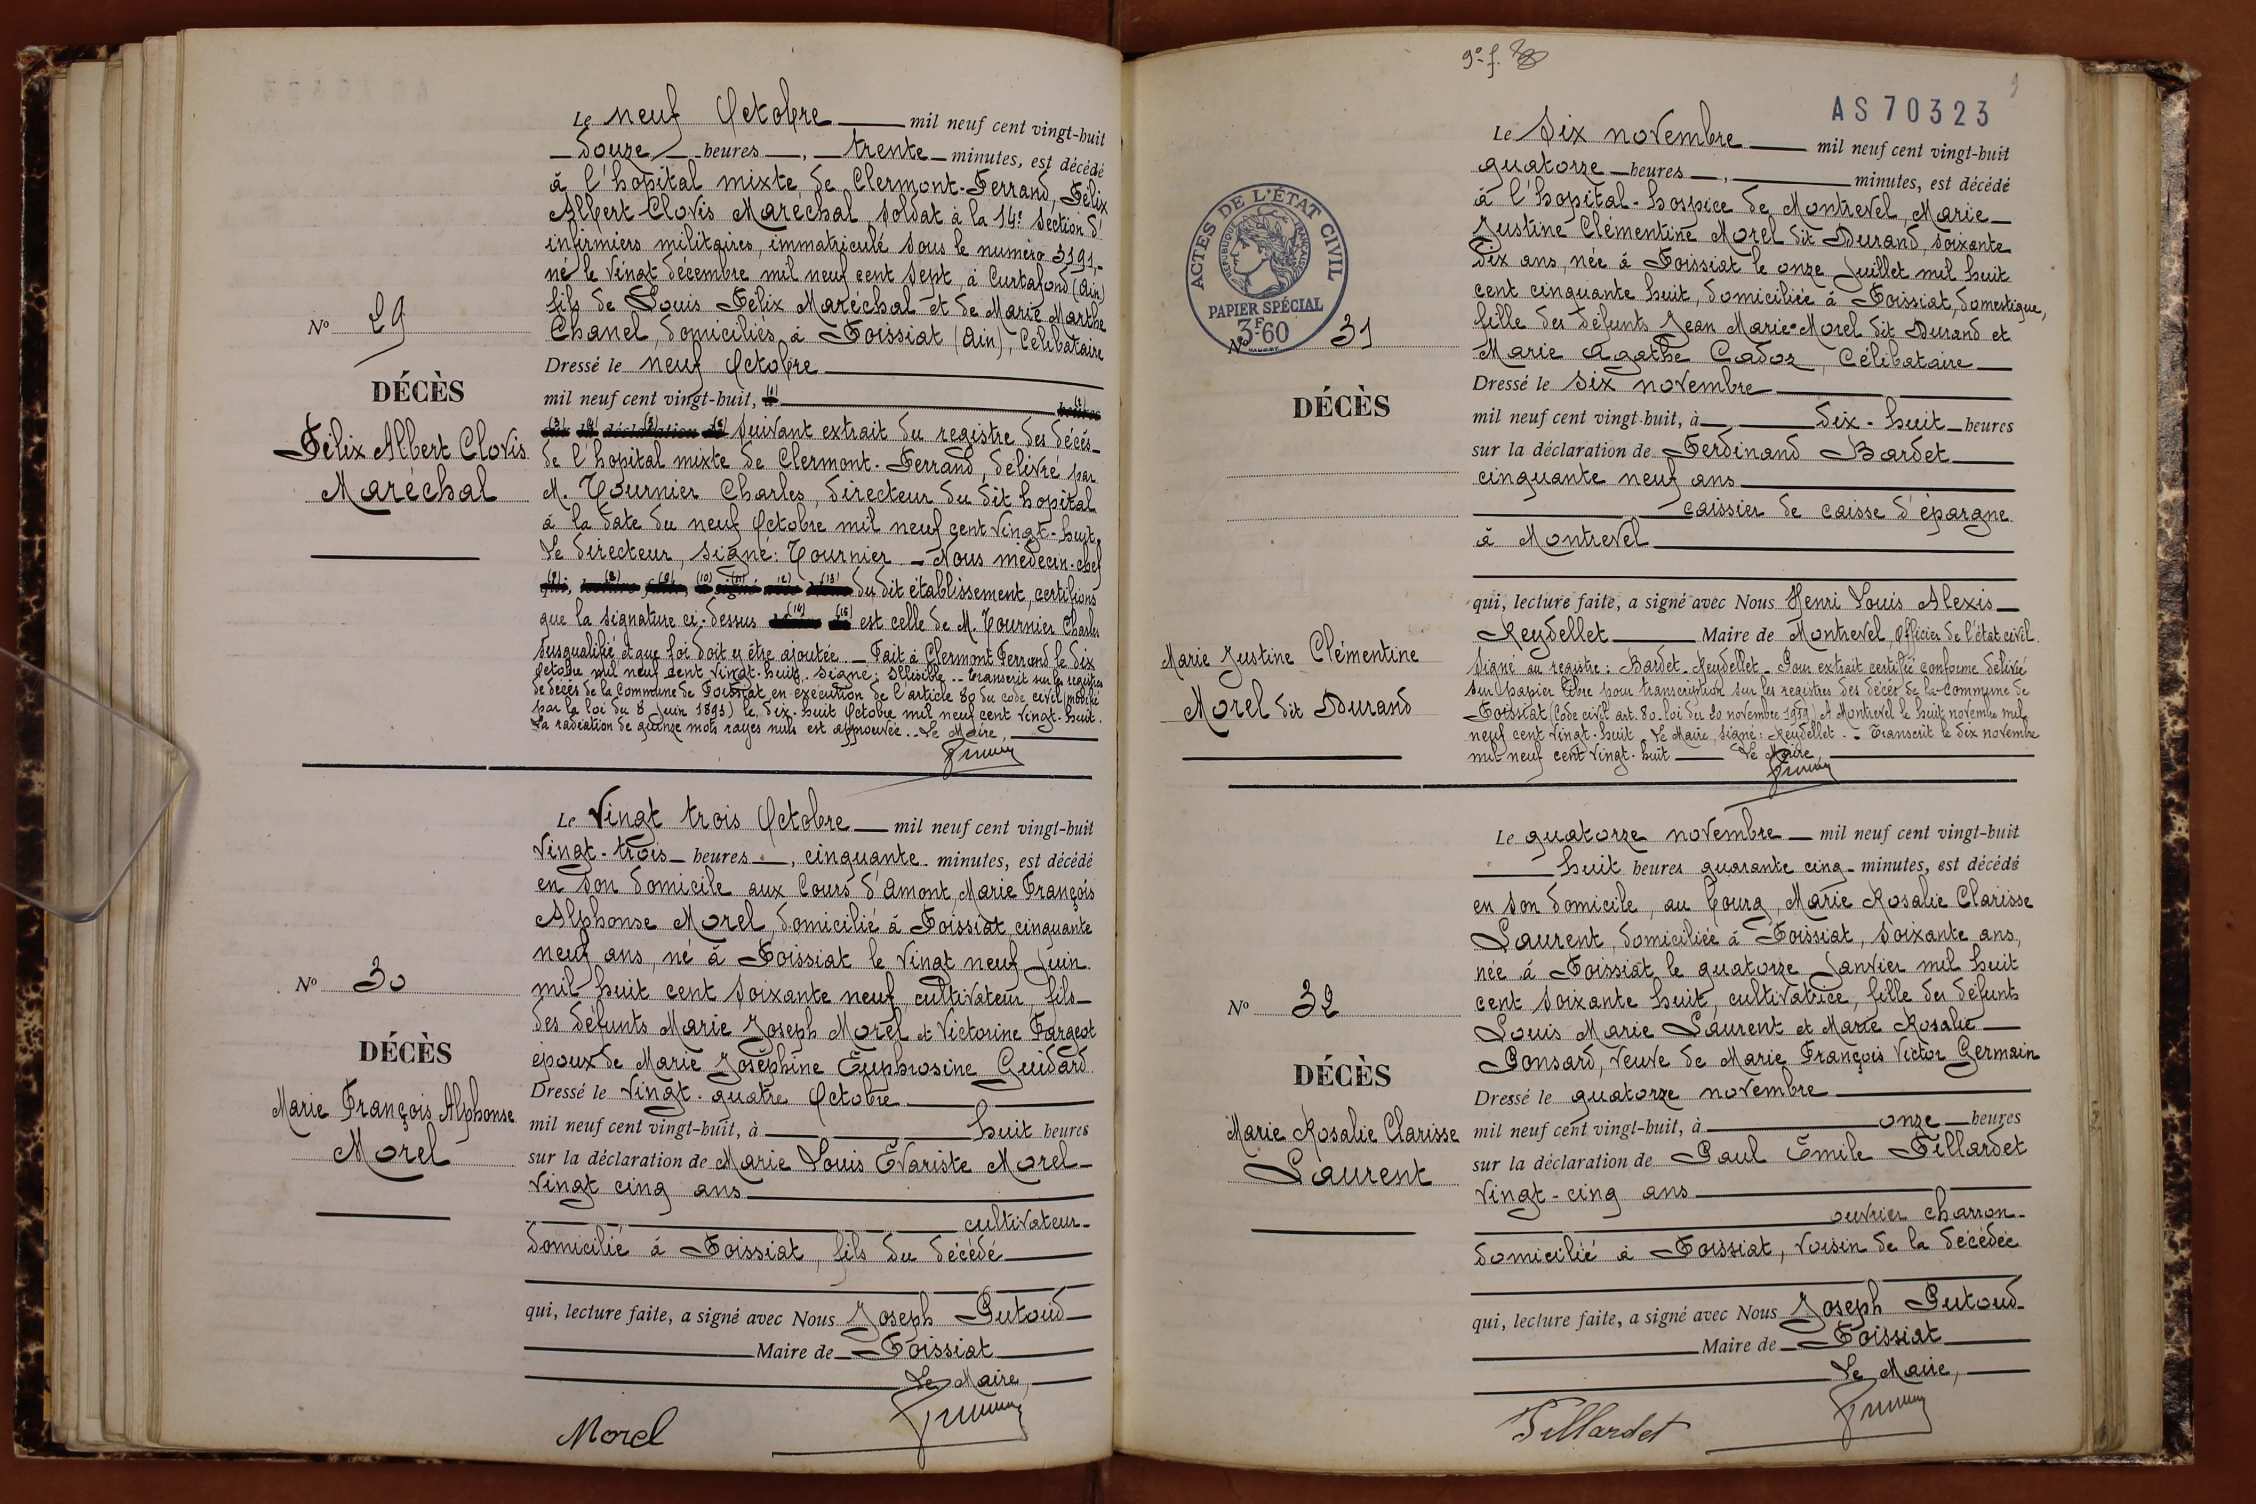 Le neuf Octobre mil neuf cent vingt-huit
douze heures, trente minutes, est décédé
à l'hopital mixte de Clermont-Ferrand, Félix
Albert Clovis Maréchal, soldat à la 14e section d'
infirmiers militaires, immatriculé sous le numéro 3191,
né le vingt décembre mil neuf cent sept, à Curtafond (Ain)
fils de Louis Félix Maréchal et de Marie Marthe
Chanel, domiciliés à Foissiat (Ain), Célibataire
Dressé le neuf Octobre
mil neuf cent vingt-huit,
suivant extrait du registre des décès
de l'hopital mixte de Clermont-Ferrand, délivré par
M. Tournier Charles, directeur du dit hopital
à la date du neuf Octobre mil neuf cent vingt-huit.
Le directeur, signé: Tournier - Nous médecin-chef
du dit établissement, certifions
que la signature ci-dessus est celle de M. Tournier Charles
susqualifié et que foi doit y être ajoutée. - Fait à Clermont Ferrand le dix
Octobre mil neuf cent vingt-huit. signé: Illisible.- Transcrit sur les registres
de décès de la Commune de Foissiat en exécution de l'article 80 du code civil (modifié
par la loi du 8 Juin 1893) le dix-huit Octobre mil neuf cent vingt-huit.
La radiation de quinze mots rayés nuls est approuvée.. Le Maire,
No 29
DÉCÈS
Félix Albert Clovis
Maréchal
Le Vingt trois Octobre mil neuf cent vingt-huit
Vingt-trois heures, cinquante minutes, est décédé
en son domicile aux Cours d'Amont, Marie François
Alphonse Morel, domicilié à Foissiat, cinquante
neuf ans, né à Foissiat le vingt neuf Juin
mil huit cent soixante neuf, cultivateur, fils
des défunts Marie Joseph Morel et Victorine Fargeot
époux de Marie Joséphine Euphrosine Guidard.
Dressé le vingt-quatre Octobre
mil neuf cent vingt-huit, à huit heures
sur la déclaration de Marie Louis Evariste Morel
vingt cinq ans
cultivateur
domicilié à Foissiat, fils du décédé
qui, lecture faite, a signé avec Nous Joseph Putoud
Maire de Foissiat
Le Maire,
Morel
No 30
DÉCÈS
Marie François Alphonse
Morel
9e f.
9
AS 70323
ACTES DE L'ÉTAT CIVIL
RÉPUBLIQUE FRANÇAISE
PAPIER SPÉCIAL
3F60
Le Six novembre mil neuf cent vingt-huit
quatorze heures, minutes, est décédé
à l'hopital-hospice de Montrevel, Marie
Justine Clémentine Morel dit Durand, soixante
dix ans, née à Foissiat le onze Juillet mil huit
cent cinquante huit, domiciliée à Foissiat, domestique,
fille des défunts Jean Marie Morel dit Durand et
Marie Agathe Cadoz, Célibataire
Dressé le six novembre
mil neuf cent vingt-huit, à dix-huit heures
sur la déclaration de Ferdinand Bardet
cinquante neuf ans
caissier de caisse d'épargne
à Montrevel
qui, lecture faite, a signé avec Nous Henri Louis Alexis
Reydellet Maire de Montrevel, Officier de l'état civil.
Signé au registre: Bardet - Reydellet - Pour extrait certifié conforme délivré
sur papier libre pour transcription sur les registres des décès de la Commune de
Foissiat (Code civil art. 80. loi du 20 novembre 1919) A Montrevel le huit novembre mil
neuf cent vingt-huit. Le Maire, signé: Reydellet.- Transcrit le dix novembre
mil neuf cent vingt-huit Le Maire
No 31
DÉCÈS
Marie Justine Clémentine
Morel dit Durand
Le quatorze novembre mil neuf cent vingt-huit
huit heures quarante cinq minutes, est décédé
en son domicile, au Bourg, Marie Rosalie Clarisse
Laurent, domiciliée à Foissiat, soixante ans,
née à Foissiat le quatorze Janvier mil huit
cent soixante huit, cultivatrice, fille des défunts
Louis Marie Laurent et Marie Rosalie
Ponsard, veuve de Marie François Victor Germain
Dressé le quatorze novembre
mil neuf cent vingt-huit, à onze heures
sur la déclaration de Paul Emile Pillardet
vingt-cinq ans
ouvrier charron
domicilié à Foissiat, voisin de la décédée
qui, lecture faite, a signé avec Nous Joseph Putoud
Maire de Foissiat
Le Maire,
Pillardet
No 32
DÉCÈS
Marie Rosalie Clarisse
Laurent